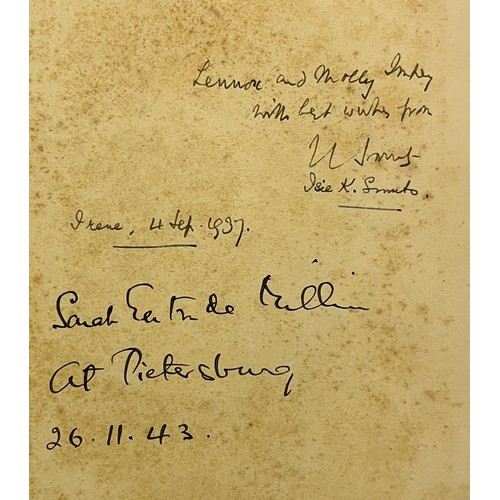 Lennox and Molly Impey
with best wishes from
Smuts
Isie K. Smuts
Irene, 4 Sep. 1937.
Sarah Gertrude Millin
At Pietersburg
26.11.43.